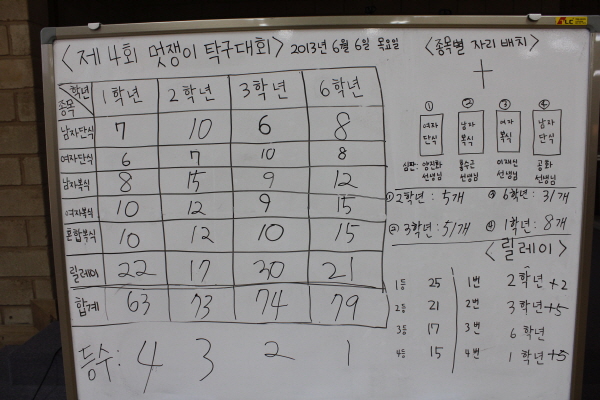 <제 4회 멋쟁이 탁구대회> 2013년 6월 6일 목요일
학년 종목 1학년 2학년 3학년 6학년
남자단식 7 10 6 8
여자단식 6 7 10 8
남자복식 8 15 9 12
여자복식 10 12 9 15
혼합복식 10 12 10 15
릴레이 22 17 30 21
합계 63 73 74 79
등수: 4 3 2 1
<종목별 자리 배치>
① ② ③ ④
여자 단식 남자 복식 여자 복식 남자 단식
심판: 양진화 선생님 홍수근 선생님 이재신 선생님 공화 선생님
① 2학년 : 5개 ③ 6학년 : 31개
② 3학년 : 51개 ④ 1학년 : 8개
<릴레이>
1등 25 1번 2학년 +2
2등 21 2번 3학년 +5
3등 17 3번 6학년
4등 15 4번 1학년 +5